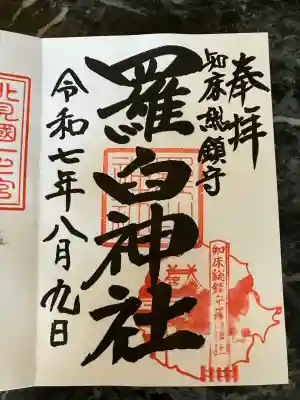 奉拝
知床総鎮守
羅臼神社
令和七年八月九日
知床総鎮守羅臼神社
北見國一之宮